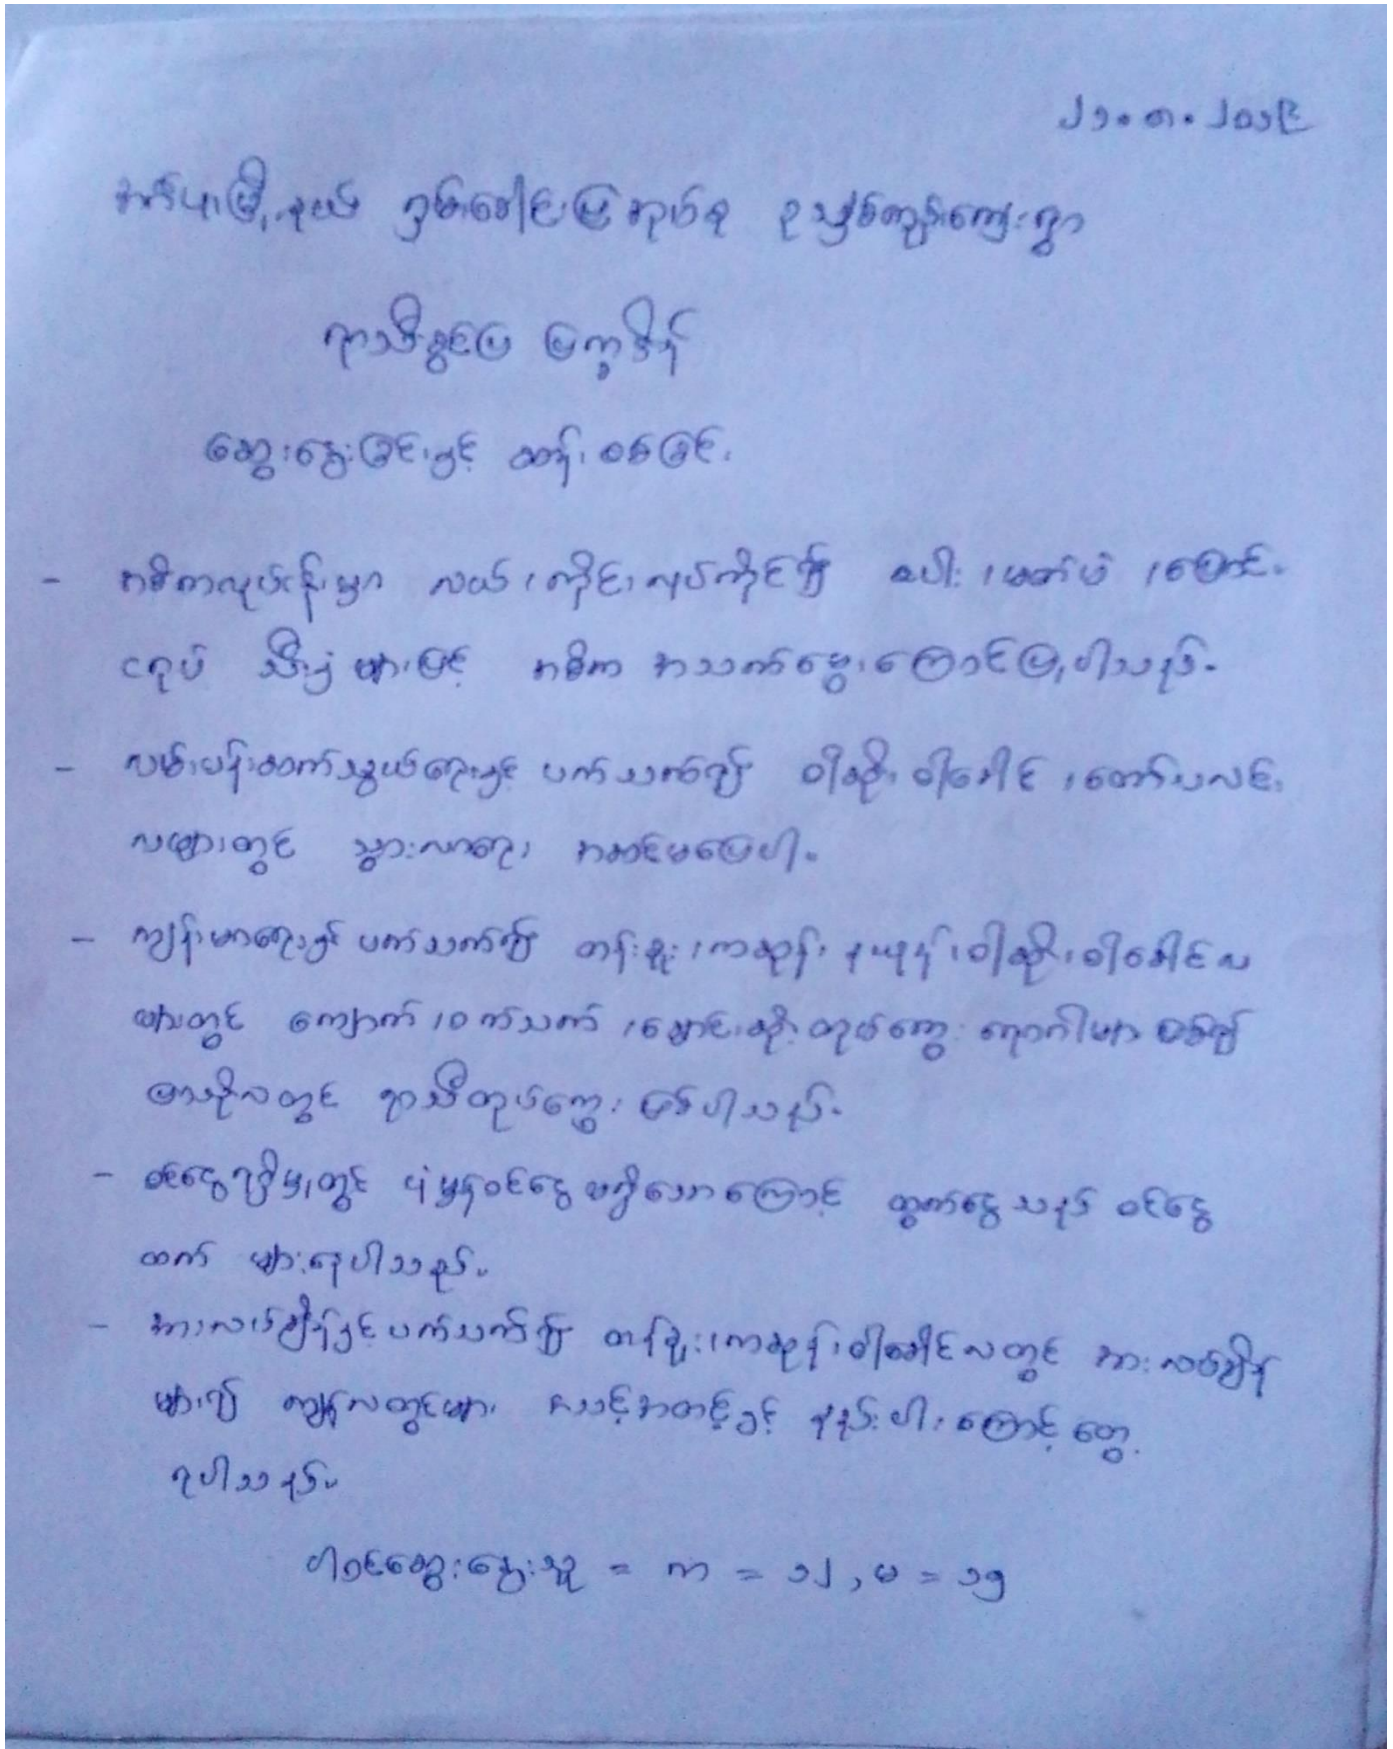 ၂၁.၈.၂၀၁၉
ရာသီခွင်ပြ ပြက္ခဒိန်
ဆွေးနွေးခြင်းနှင့် ဆန်းစစ်ခြင်း
- အဓိကလုပ်ငန်းမှာ လယ်၊ ကိုင်း၊ လုပ်ကိုင်၍ စပါး၊ မတ်ပဲ၊ ပြောင်း
ငရုပ် သီးနှံများဖြင့် အဓိက အသက်မွေးကြောင်းပြုပါသည်။
- လမ်းပန်းဆက်သွယ်ရေးနှင့် ပက်သက်၍ ဝါဆို၊ ဝါခေါင်၊ တော်သလင်း
လများတွင် သွားလာရေး အဆင်မပြေပါ။
- ကျန်းမာရေးနှင့် ပက်သက်၍ တန်ခူး၊ ကဆုန်၊ နယုန်၊ ဝါဆို၊ ဝါခေါင်လ
များတွင် ကျောက်၊ ဝက်သက်၊ ချောင်းဆိုး တုပ်ကွေး ရောဂါများ ဖြစ်၍
ပြာသိုလတွင် ရာသီတုပ်ကွေး ဖြစ်ပါသည်။
- ဝင်ငွေရရှိမှုတွင် ပုံမှန်ဝင်ငွေ မရှိသောကြောင့် ထွက်ငွေသည် ဝင်ငွေ
ထက် များနေပါသည်။
- အားလပ်ချိန်နှင့် ပက်သက်၍ တန်ခူး၊ ကဆုန်၊ ဝါခေါင်လတွင် အားလပ်ချိန်
များ၍ ကျန်လတွင်များ အသင့်အတင့်နှင့် နည်းပါးကြောင့် တွေ့
ရပါသည်။
ပါဝင်ဆွေးနွေးသူ = ကာ = ၁၂, မ = ၁၅